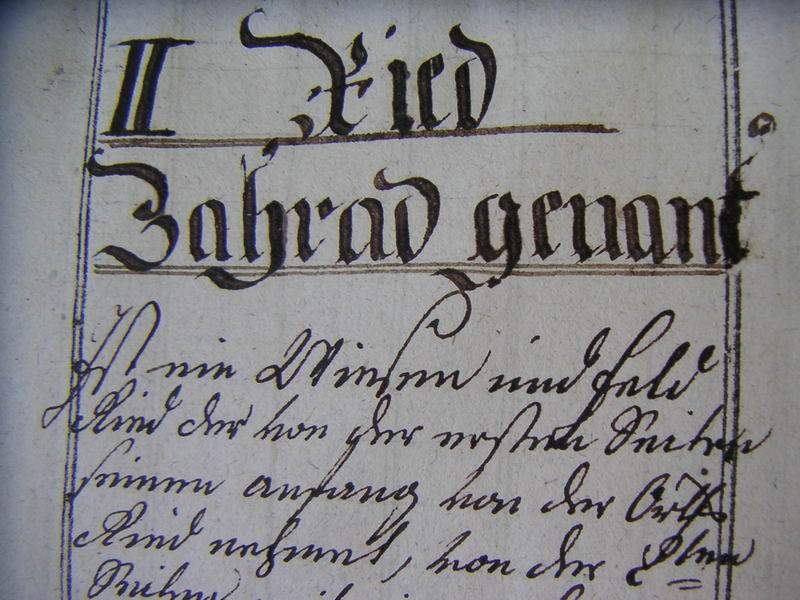 II Ried
Zahrad genant
Ist ein Wiesen und Feld
Ried der von der ersten Seiten
seinen anfang von der Orths
Ried nehmet, von der 2ten
Seithen